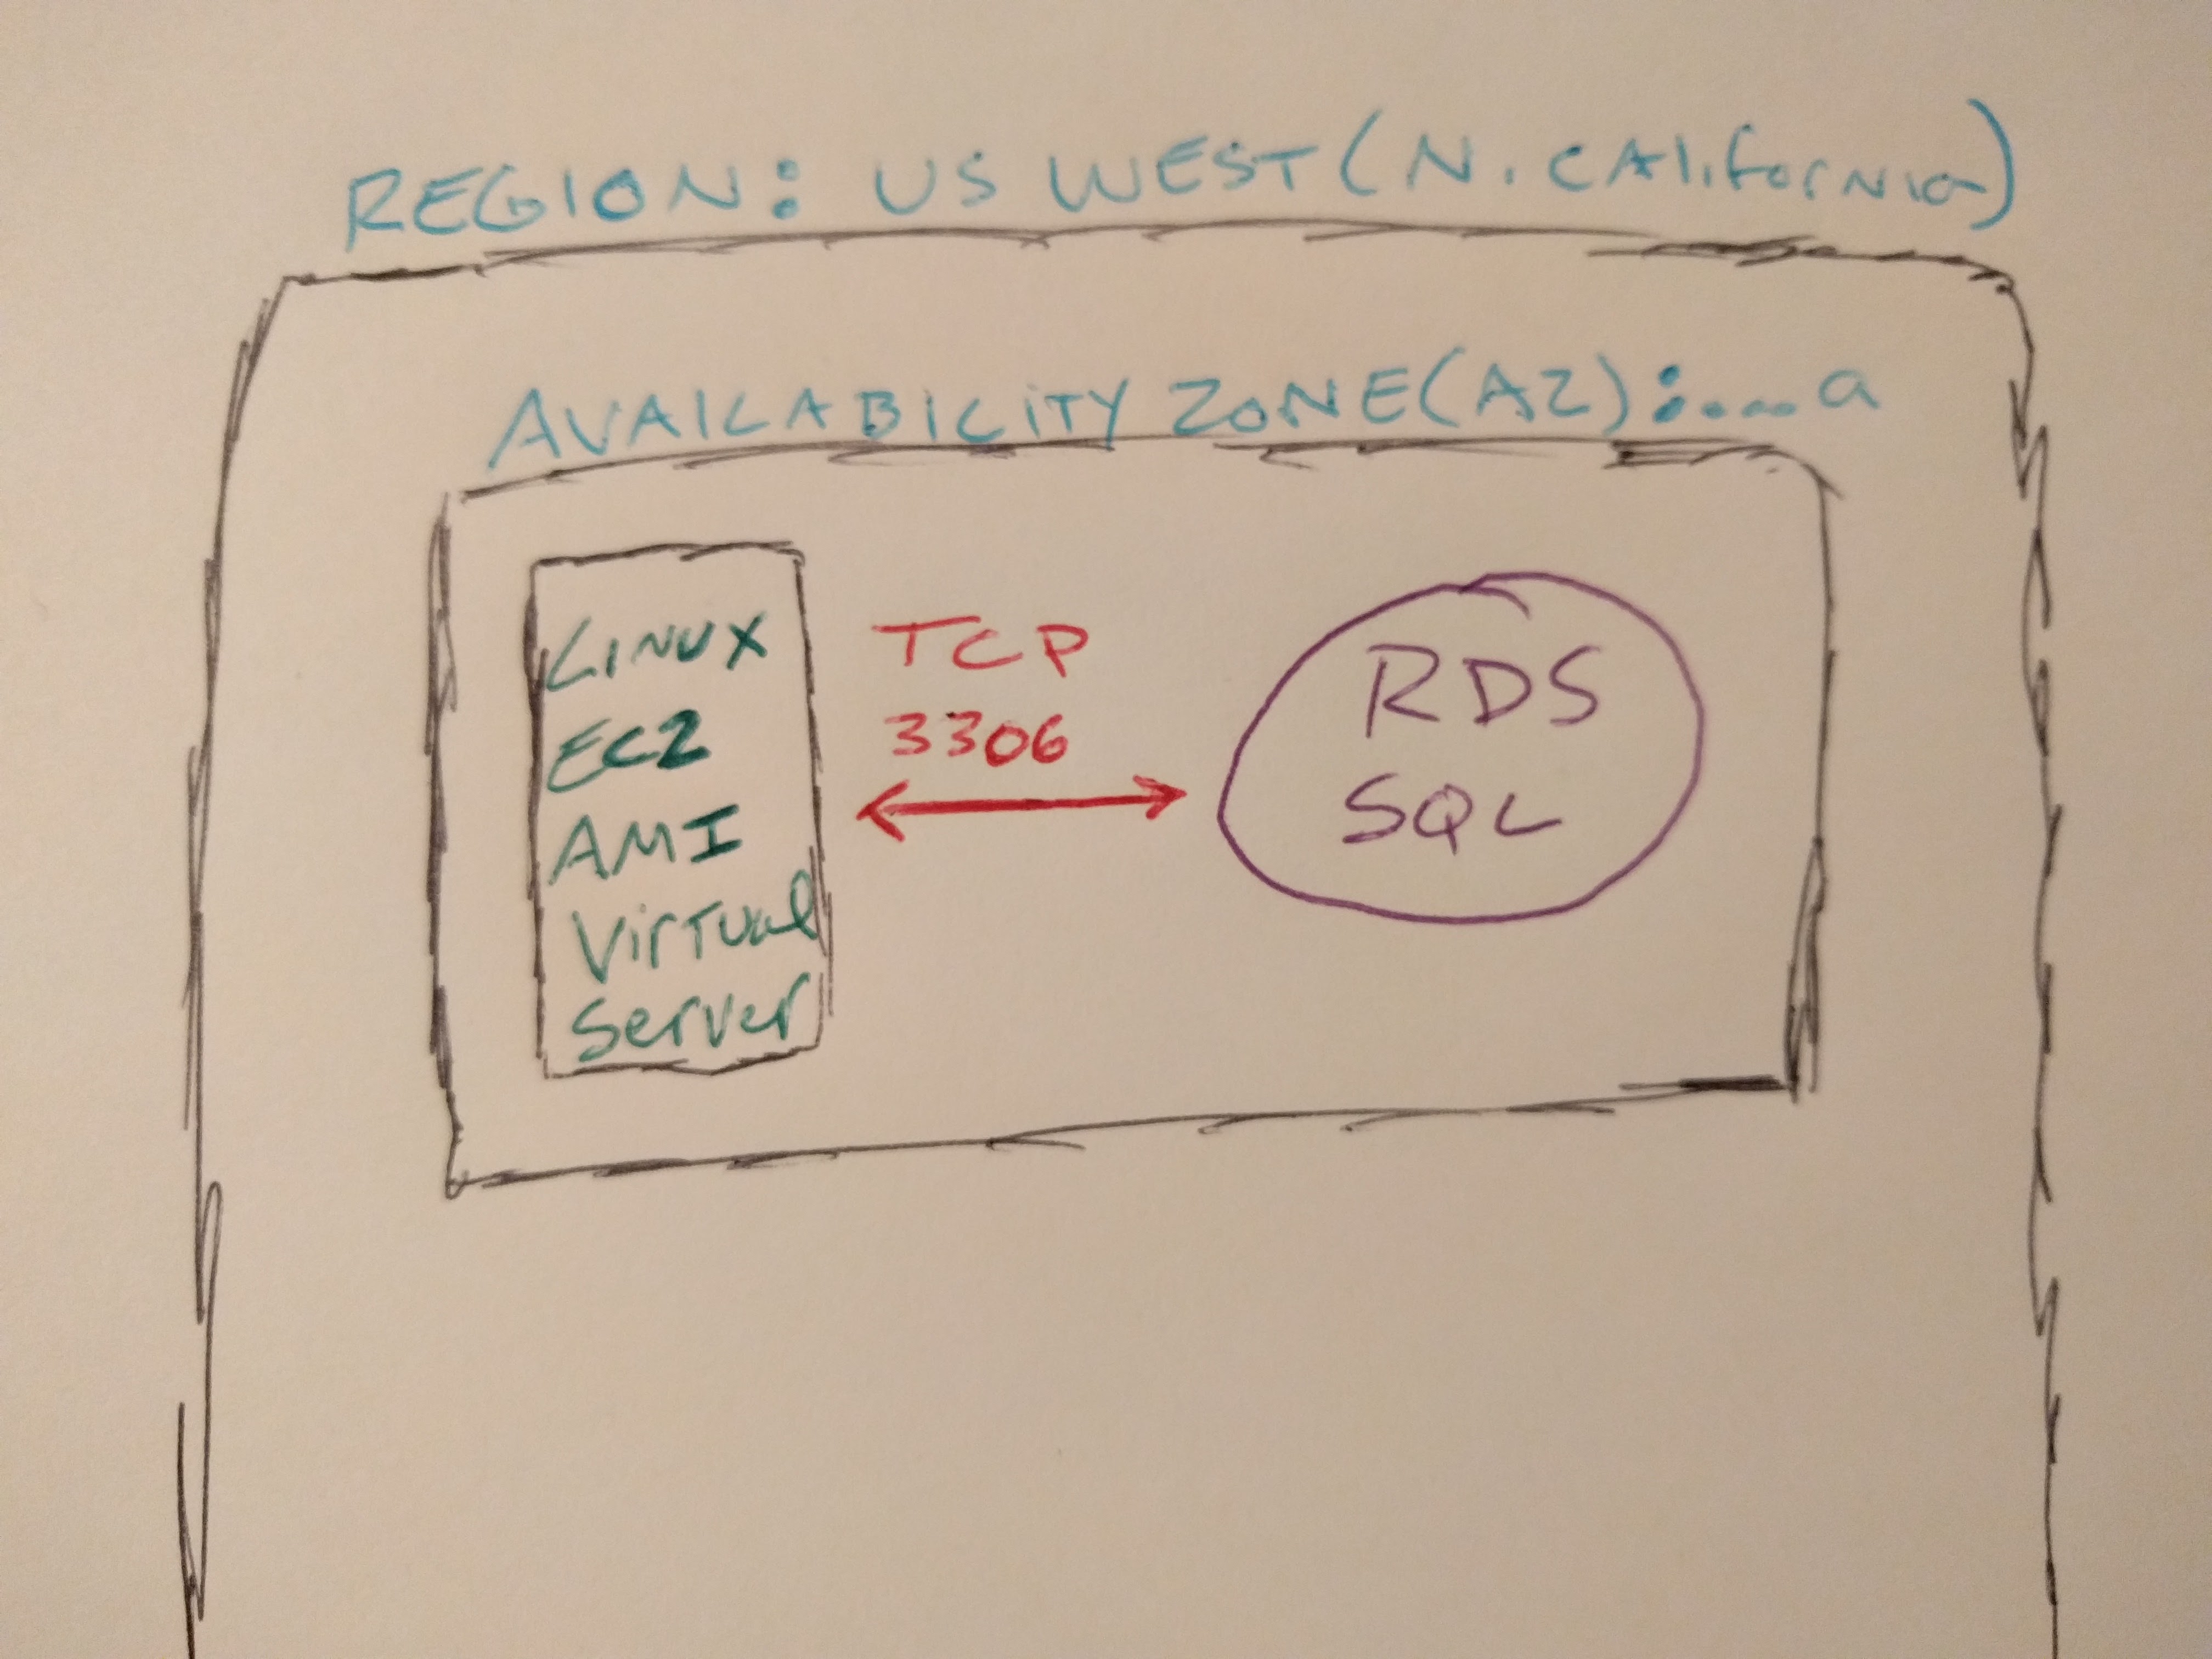 REGION: US WEST (N. CAliforNia)
AVAILABILITY ZONE (AZ):....a
LINUX
EC2
AMI
Virtual
Server
TCP
3306
RDS
SQL